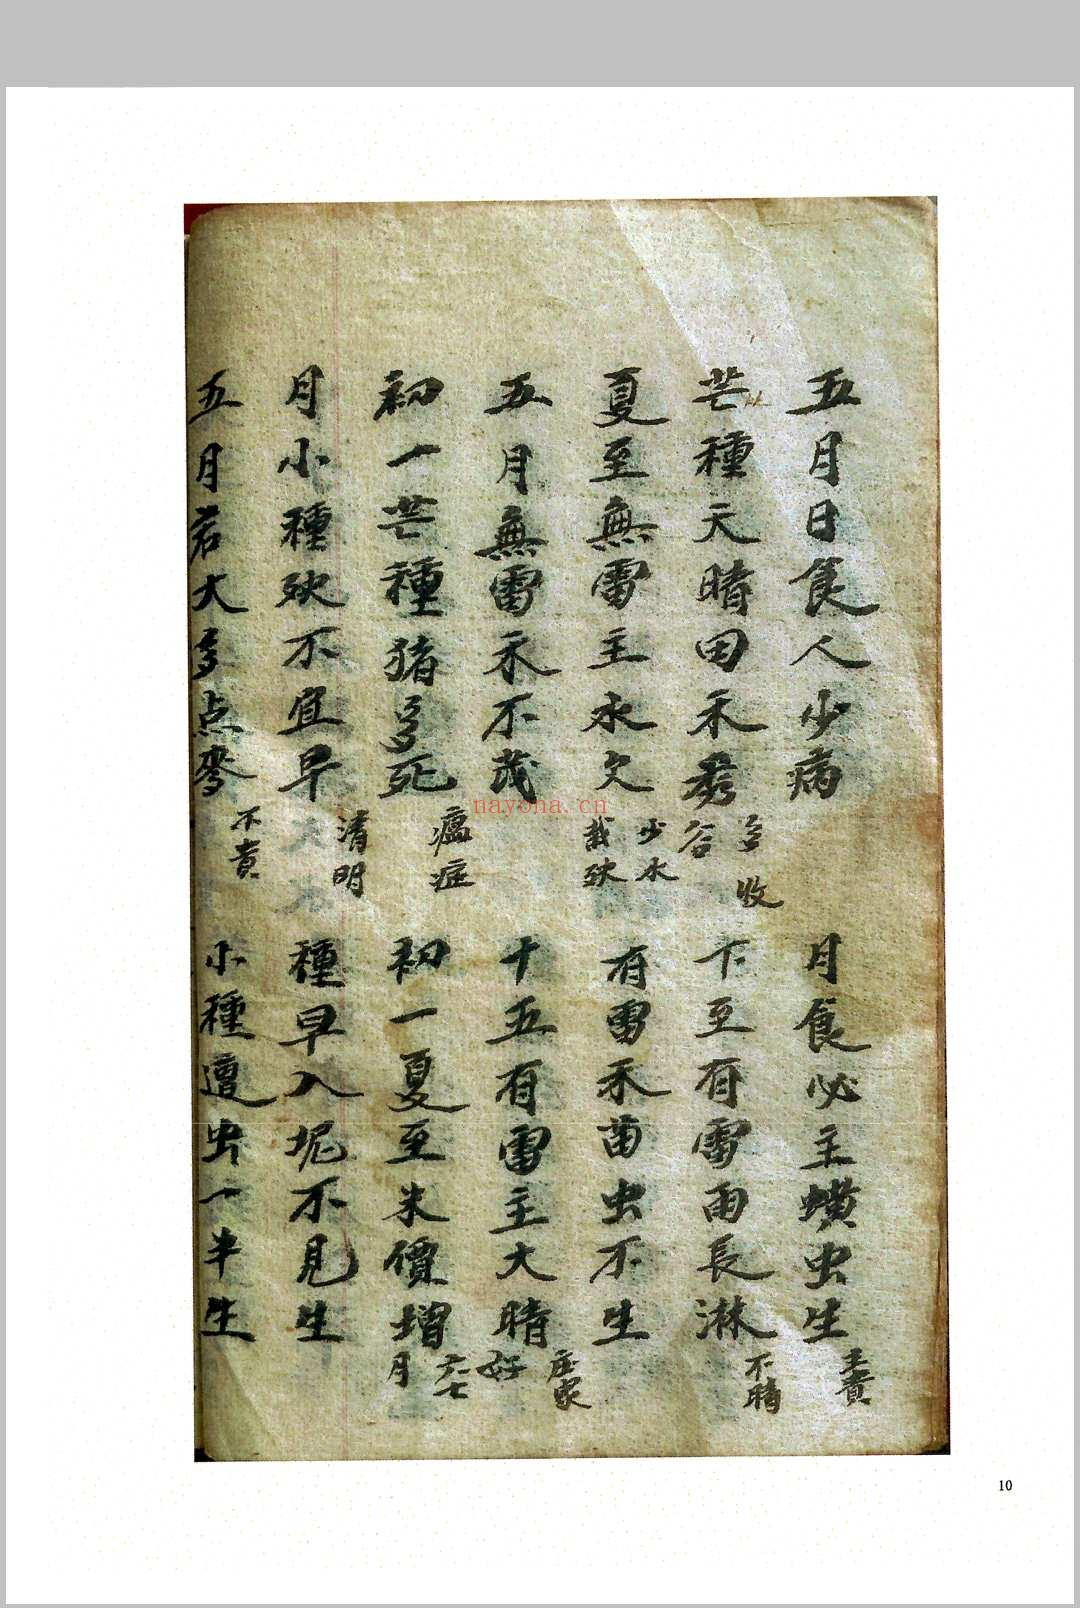 五月日食人少病
月食必主蟥虫生
主貴
芒種天晴田禾秀
多收
谷
下至有雷雨長淋
不晴
夏至無雷主水欠
少水
栽
有雷禾苗虫不生
五月無雷禾不茂
十五有雷主大晴
庄家
好
初一芒種猪多死
瘟症
初一夏至米價增
六七
月
月小種不宜早
清明
種早入坭不見生
五月若大多点麥
不貴
小種遭虫一半生
nayona.cn
10